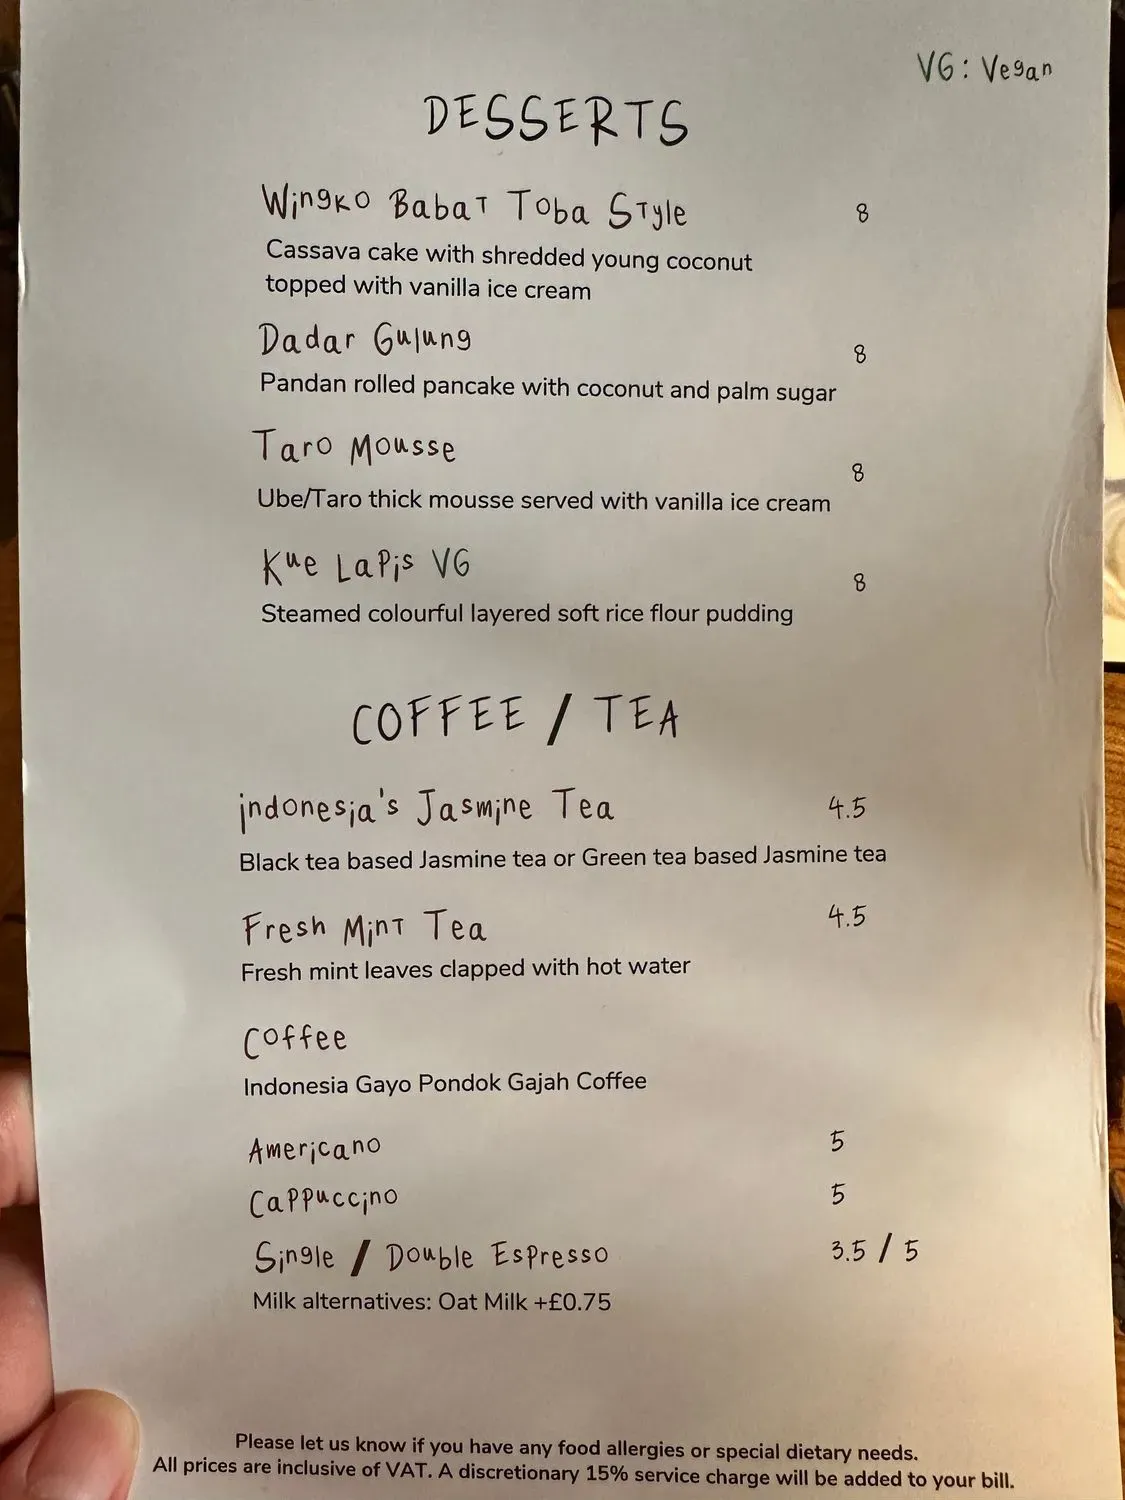 VG: Vegan
DESSERTS
Wingko Babat Toba Style 8
Cassava cake with shredded young coconut
topped with vanilla ice cream
Dadar Gulung 8
Pandan rolled pancake with coconut and palm sugar
Taro Mousse 8
Ube/Taro thick mousse served with vanilla ice cream
Kue Lapis VG 8
Steamed colourful layered soft rice flour pudding
COFFEE / TEA
indonesia's Jasmine Tea 4.5
Black tea based Jasmine tea or Green tea based Jasmine tea
Fresh Mint Tea 4.5
Fresh mint leaves clapped with hot water
Coffee
Indonesia Gayo Pondok Gajah Coffee
Americano 5
Cappuccino 5
Single / Double Espresso 3.5 / 5
Milk alternatives: Oat Milk +£0.75
Please let us know if you have any food allergies or special dietary needs.
All prices are inclusive of VAT. A discretionary 15% service charge will be added to your bill.